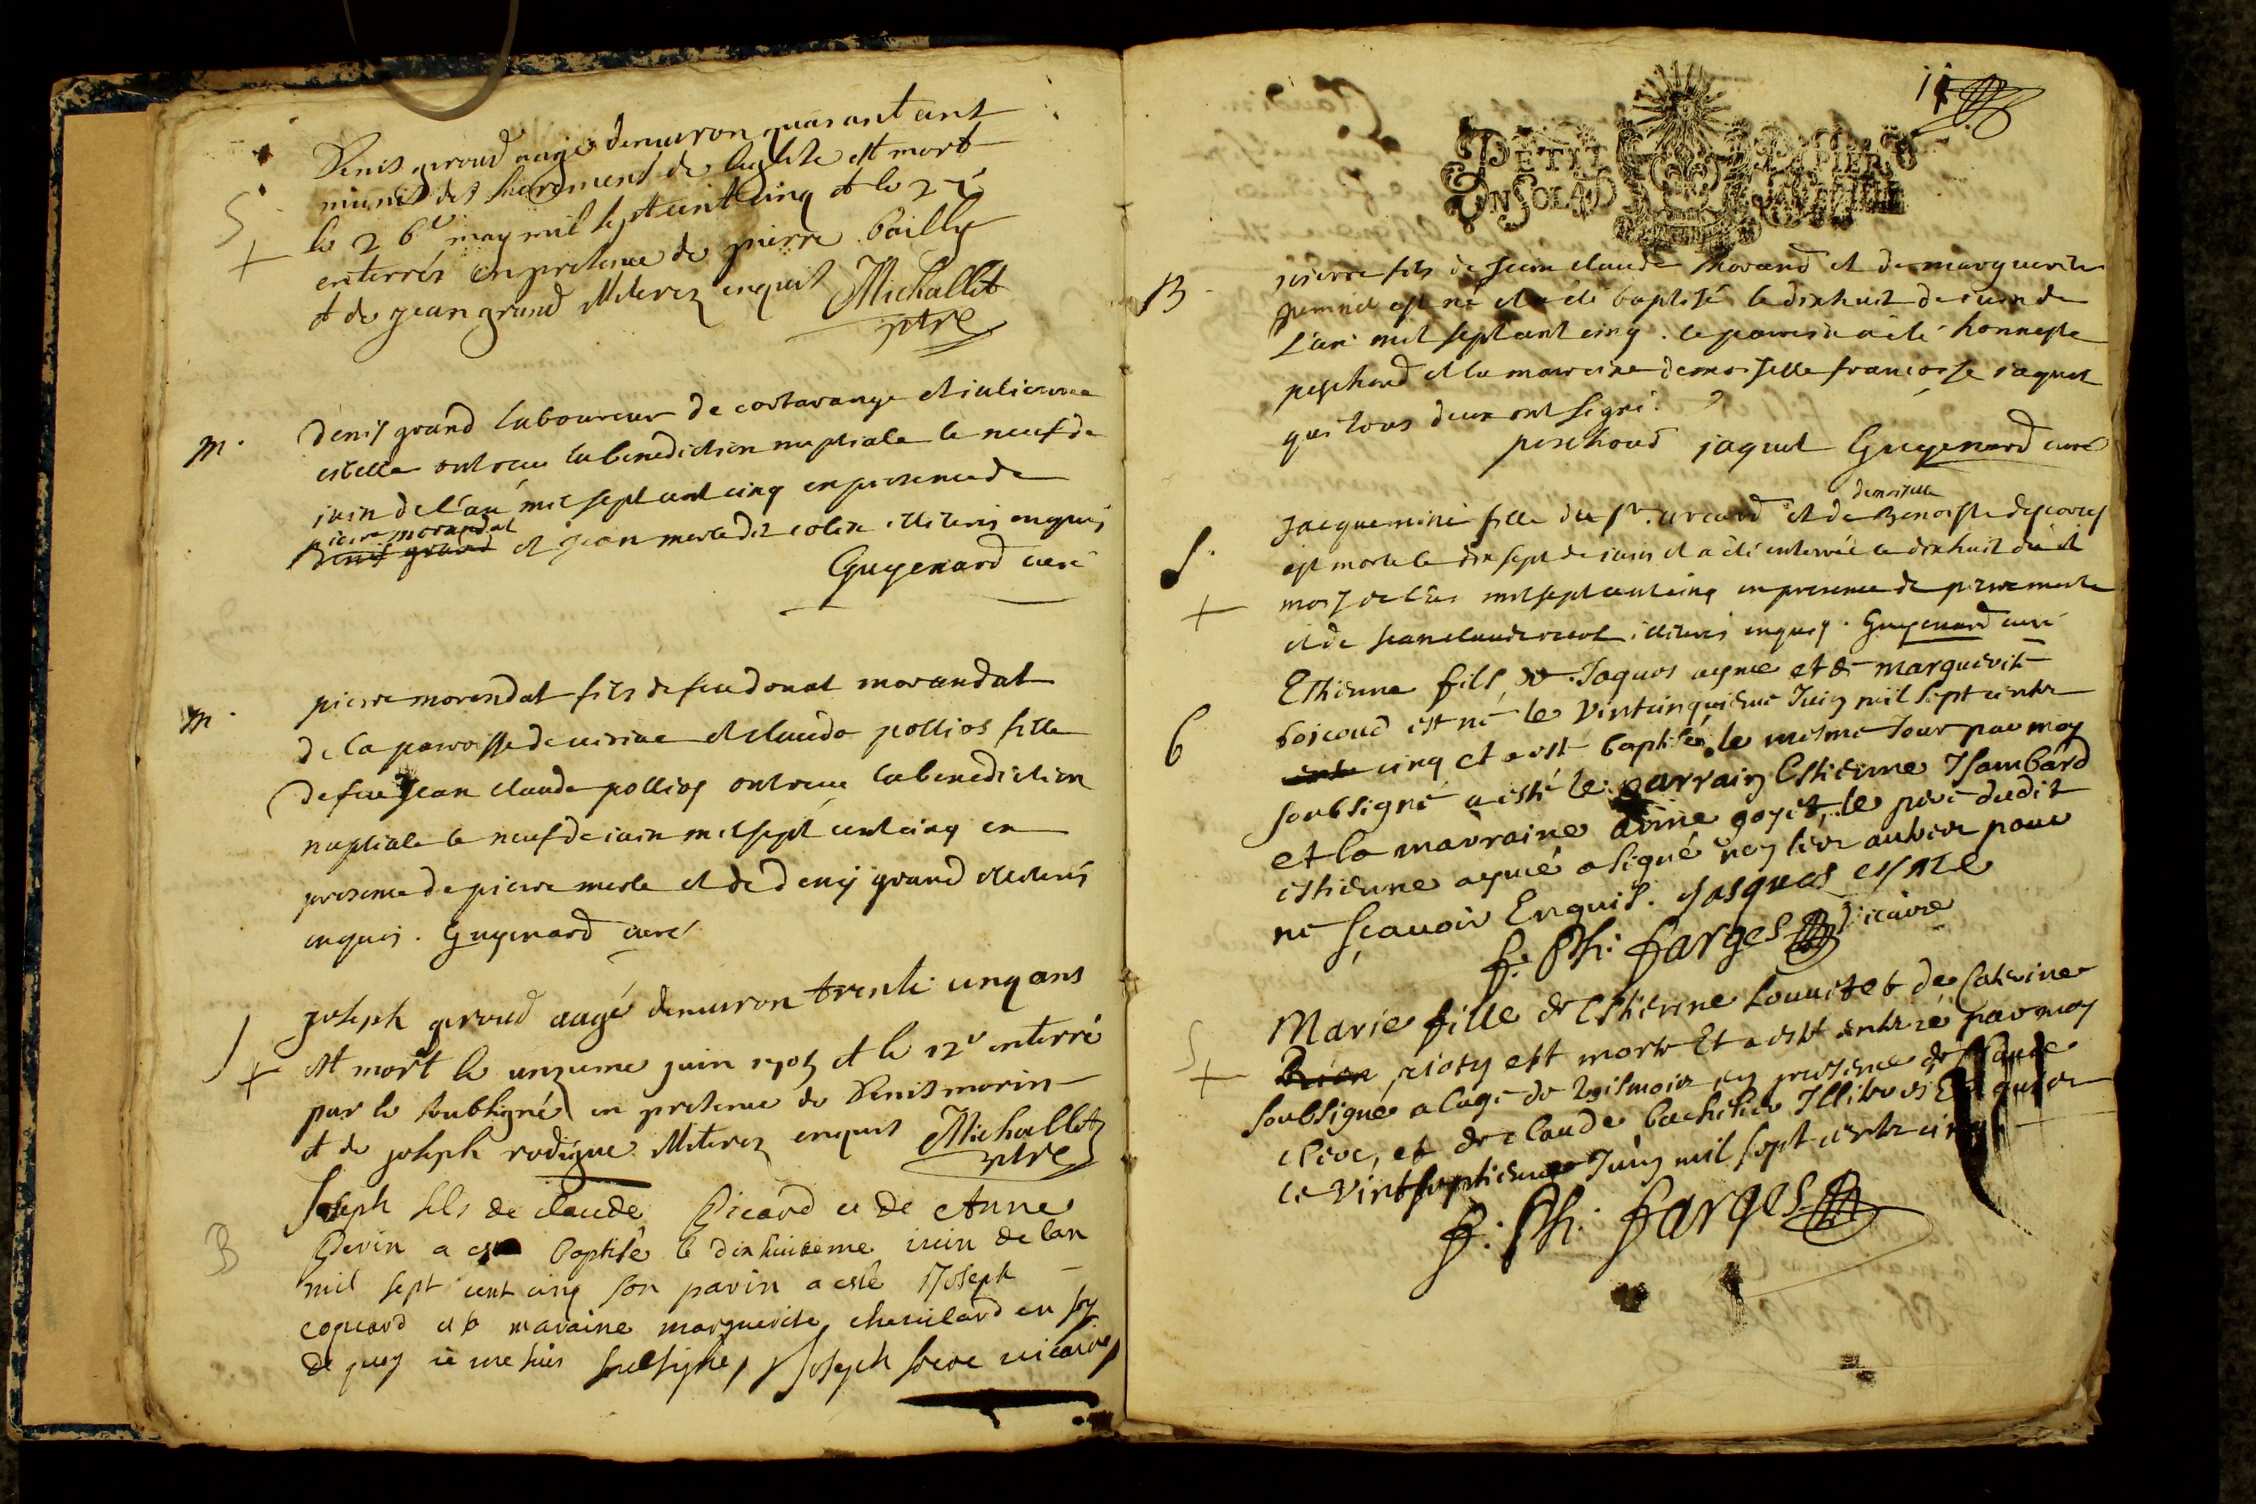 S
Denis giroud aagé denuiron quarant ans
munit des sacrements de leglise est mort
le 26e may mil sept cent cinq et le 27
enterrés en presence de pierre bailly
et de jean grand illiterez enquis Michallet
ptre
m.
denis grand laboureur de cortavange et
ont receu la benediction nuptiale le neuf de
juin de l'an mil sept cent cinq en presence de
pierre morandat
Denis grand et jean merle dit colin illiteris enquis
Guyenard curé
m.
pierre morandat fils de feu donat morandat
de la paroisse de et clauda pollios fille
de feu Jean claude pollios ont receu la benediction
nuptiale le neuf de iuin mil sept cent cinq en
presence de pierre merle et de denis grand illiteris
enquis. Guyenard curé
S
joseph giroud aagé denuiron trente cinq ans
est mort le unzieme juin 1705 et le 12e enterré
par le soubsigné en presence de Denis morin
et de joseph rodigue illiterez enquis Michallet
ptre
B
Joseph fils de claude Picard et de Anne
Peuin a esté baptisé le dix huitieme iuin de lan
mil sept cent cinq son parin a esté Joseph
coquard et la maraine marguerite cheuilard en foy
de quoy ie me suis soubsigné, Joseph vicaire
11
PETIT PAPIER
UN SOL
B
pierre fils de Jean claude morand et de marguerite
est né et a été baptisé le dixhuit de iuin de
l'an mil sept cent cinq. le parrein a été honneste
peschoud et la marreine demoiselle francoise jaquet
qui tous deux ont signé.
peschoud jaquet Guyenard curé
S.
demoiselle
Jacquemine fille du sr. et de Benoiste
est morte le dix sept de iuin et a été enterrée le dixhuit dud
mois de l'an mil sept cent cinq en presence de pierre merle
et de Jean claude illiteris enquis. Guyenard curé
6
Esthienne fils de Jaques ayme et de marguerite
boicoud est né le vintcinquieme Juin mil sept cents
cinq et a esté baptisé le mesme Jour par moy
soubsigné a esté le parrain Esthienne Isambard
et la marraine anne goyet, le pere dudit
esthienne aymé a signé les autres pour
ne sçauoir Enquis. Jasques esme
f. Ph: farges vicaire
S
Marie fille de Esthienne Louuet et de Caterine
pioty est morte Et a esté enterré par moy
soubsigné a lage de mois en presence de Claude
cleoc, et de claude bachelier Illiteres Enquis
le vintseptieme Juin mil sept cents cinq
f. Ph: farges